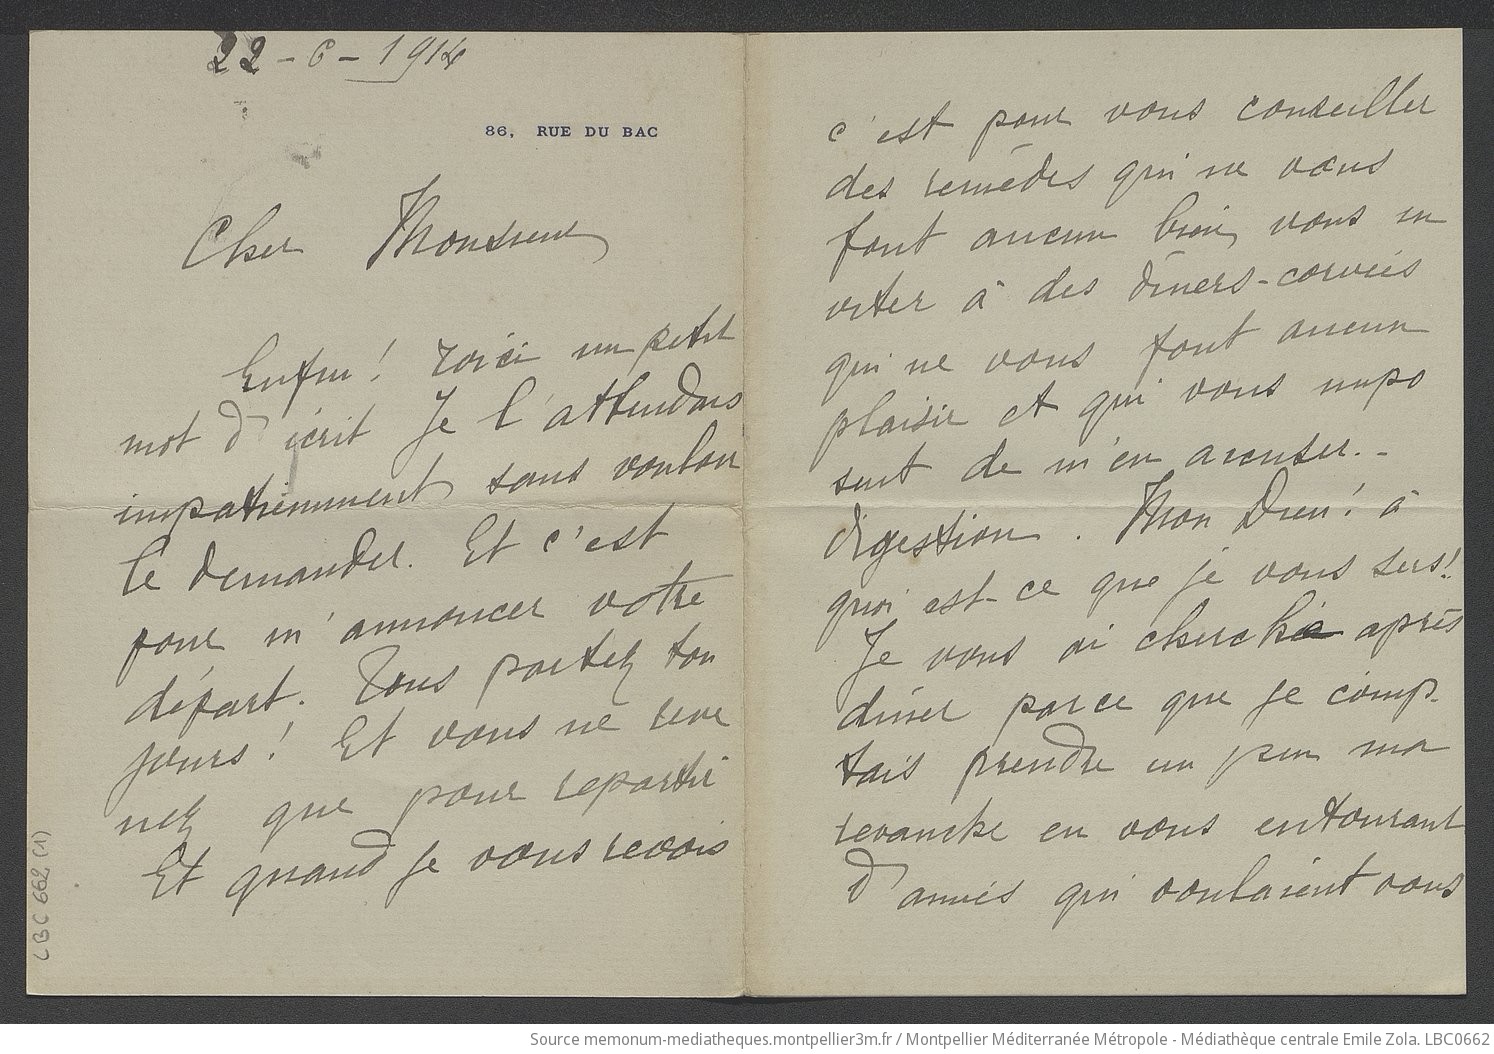 22-6-1914
86, RUE DU BAC
Cher Monsieur
Enfin! voici un petit
mot d'écrit Je l'attendais
impatiemment sans vouloir
le demander. Et c'est
pour m'annoncer votre
départ. Vous partez tou
jours! Et vous ne reve
nez que pour repartir
Et quand je vous reçois
c'est pour vous conseiller
des remèdes qui ne vous
font aucun bien, vous in
viter à des dîners-corvées
qui ne vous font aucun
plaisir et qui vous impo
sent de m'en accuser..
digestion. Mon Dieu! à
quoi est-ce que je vous sers!.
Je vous ai cherché après
dîner parce que je comp-
tais prendre un peu ma
revanche en vous entourant
d'amies qui voulaient vous
LBC 662 (1)
Source memonum-mediatheques.montpellier3m.fr / Montpellier Méditerranée Métropole - Médiathèque centrale Emile Zola. LBC0662